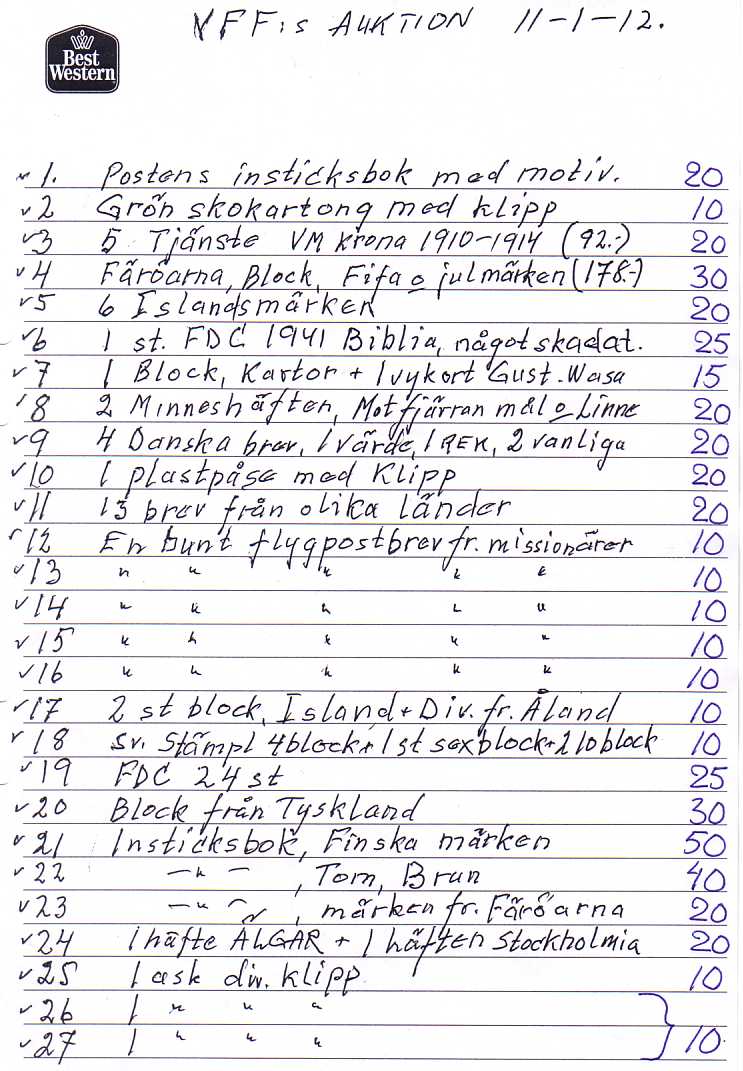 VFF:s AUKTION 11-1-12.
Best
Western
1. Postens insticksbok med motiv. 20
2 Grön skokartong med klipp 10
3 5 Tjänste VM krona 1910-1914 (92.-) 20
4 Färöarna, Block, Fifa o julmärken (178.-) 30
5 6 Islandsmärken 20
6 1 st. FDC 1941 Biblia, något skadat. 25
7 1 Block, Kartor + 1 vykort Gust. Wasa 15
8 2 Minneshäften, Mot fjärran mål o Linne 20
9 4 Danska brev, 1 värde, 1 REK, 2 vanliga 20
10 1 plastpåse med Klipp 20
11 13 brev från olika länder 20
12 En bunt flygpostbrev fr. missionärer 10
13 " " " " " 10
14 " " " " " 10
15 " " " " " 10
16 " " " " " 10
17 2 st block, Island + Div. fr. Åland 10
18 Sv. Stämpl 4block + 1 st sexblock + 2 10block 10
19 FDC 24 st 25
20 Block från Tyskland 30
21 Insticksbok, Finska märken 50
22 — " — , Tom, Brun 40
23 — " — , märken fr. Färöarna 20
24 1 häfte ÄLGAR + 1 häften Stockholmia 20
25 1 ask div. klipp 10
26 1 " " "
27 1 " " " } 10